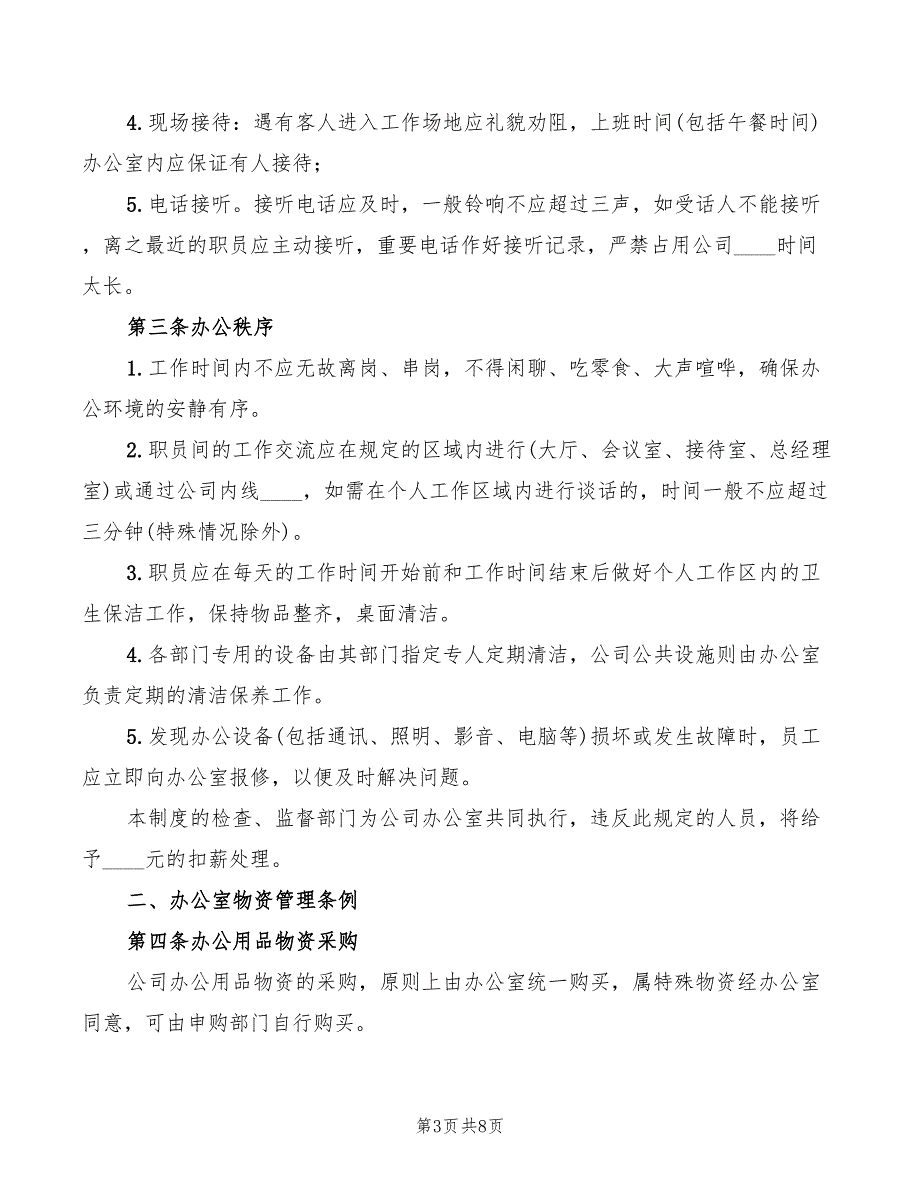 4. 现场接待：遇有客人进入工作场地应礼貌劝阻，上班时间(包括午餐时间)
办公室内应保证有人接待；
5. 电话接听。接听电话应及时，一般铃响不应超过三声，如受话人不能接听
，离之最近的职员应主动接听，重要电话作好接听记录，严禁占用公司____时间
太长。
第三条办公秩序
1. 工作时间内不应无故离岗、串岗，不得闲聊、吃零食、大声喧哗，确保办
公环境的安静有序。
2. 职员间的工作交流应在规定的区域内进行(大厅、会议室、接待室、总经理
室)或通过公司内线____，如需在个人工作区域内进行谈话的，时间一般不应超过
三分钟(特殊情况除外)。
3. 职员应在每天的工作时间开始前和工作时间结束后做好个人工作区内的卫
生保洁工作，保持物品整齐，桌面清洁。
4. 各部门专用的设备由其部门指定专人定期清洁，公司公共设施则由办公室
负责定期的清洁保养工作。
5. 发现办公设备(包括通讯、照明、影音、电脑等)损坏或发生故障时，员工
应立即向办公室报修，以便及时解决问题。
本制度的检查、监督部门为公司办公室共同执行，违反此规定的人员，将给
予____元的扣薪处理。
二、办公室物资管理条例
第四条办公用品物资采购
公司办公用品物资的采购，原则上由办公室统一购买，属特殊物资经办公室
同意，可由申购部门自行购买。
第3页 共8页